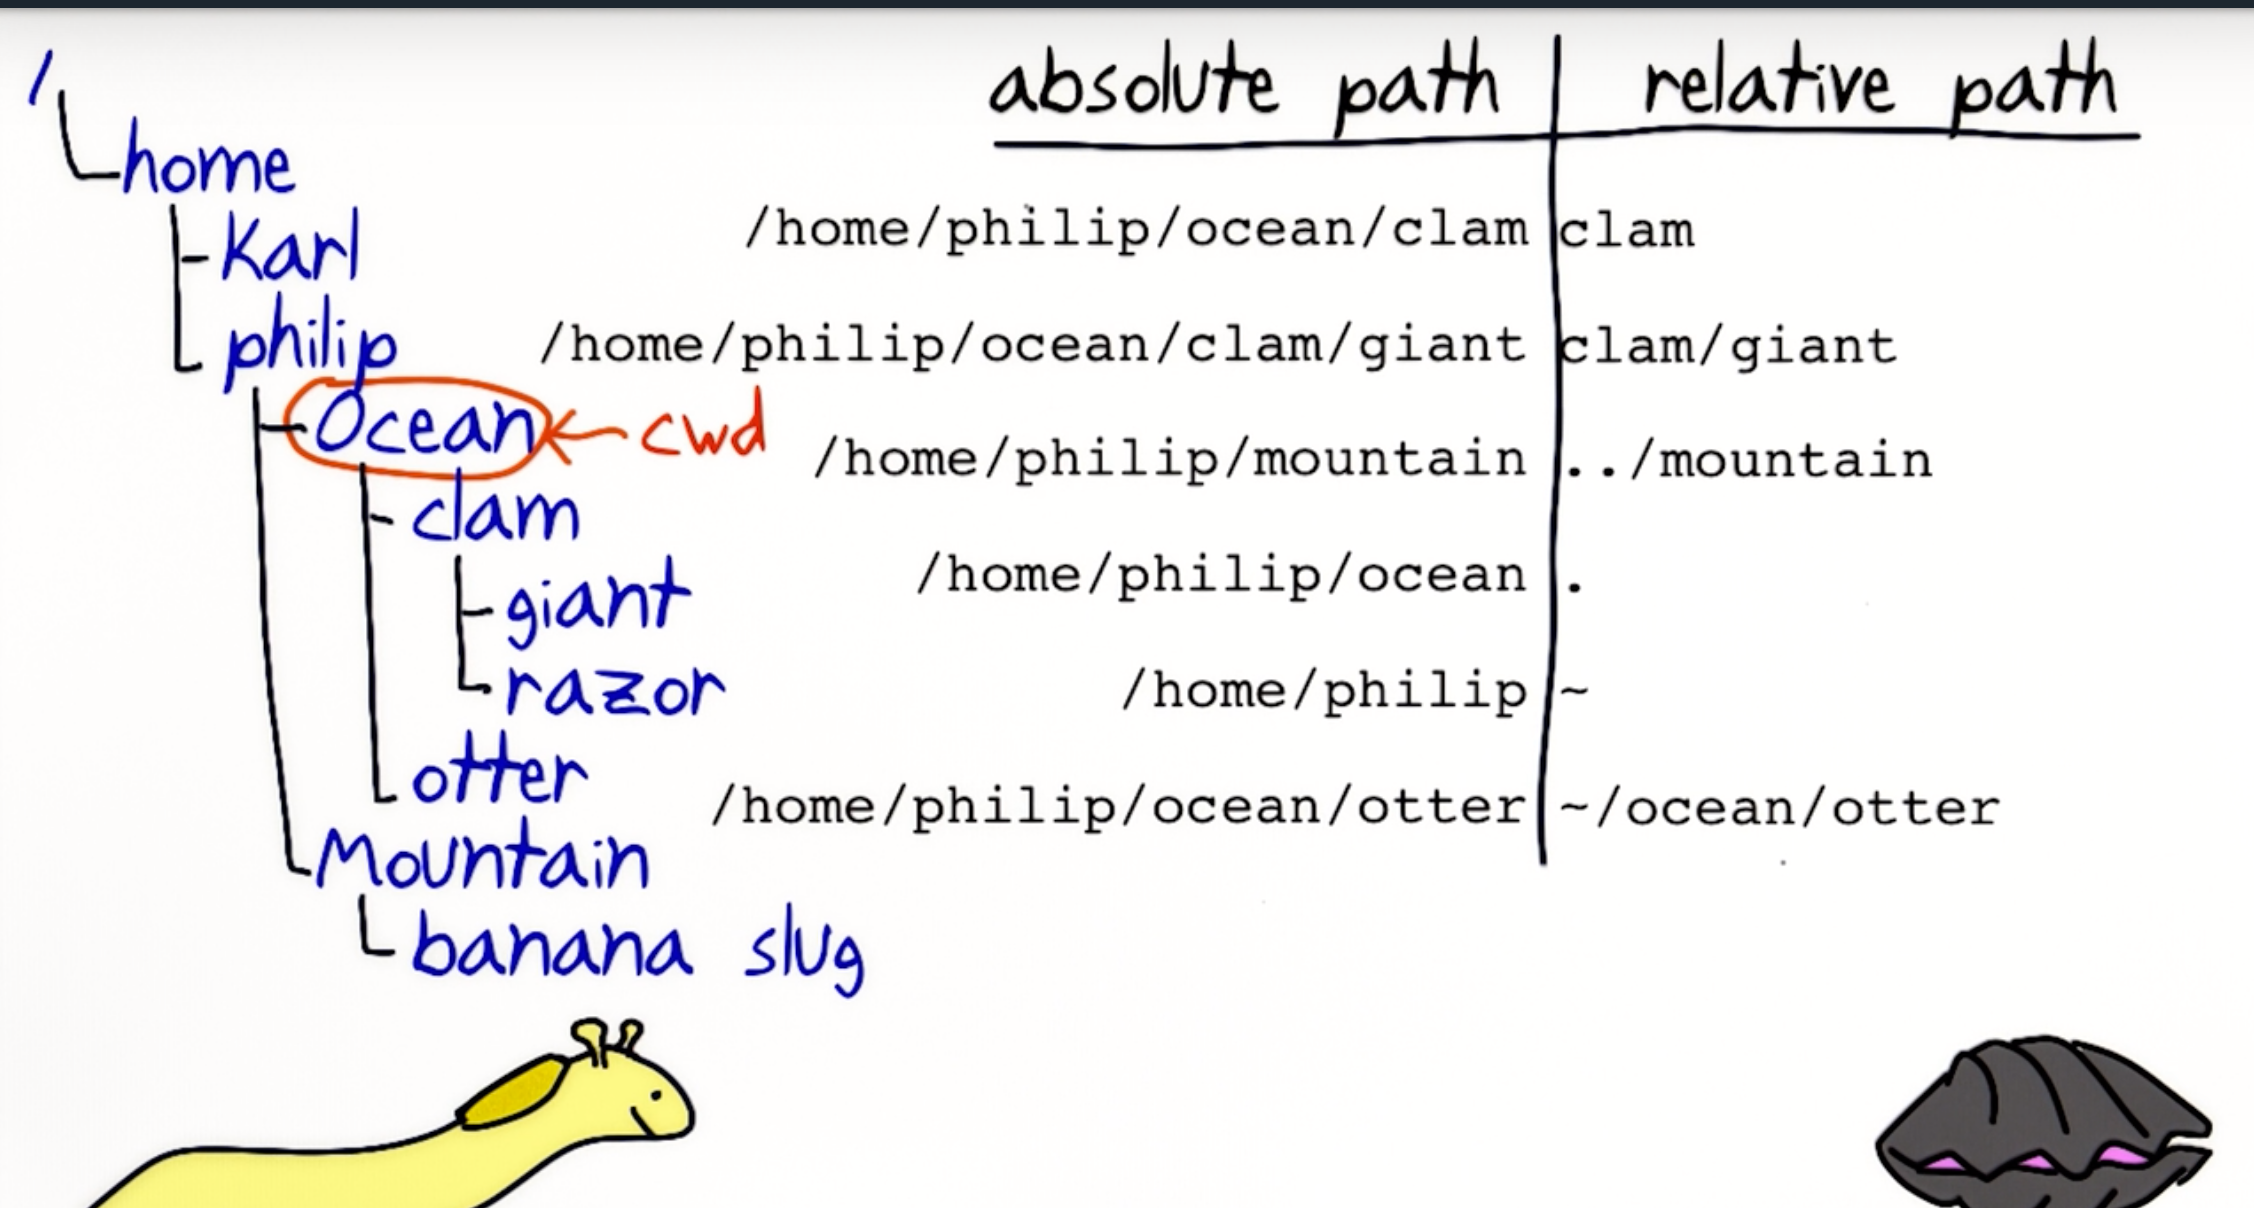 /
home
Karl
philip
Ocean ← cwd
clam
giant
razor
otter
Mountain
banana slug
absolute path | relative path
/home/philip/ocean/clam | clam
/home/philip/ocean/clam/giant | clam/giant
/home/philip/mountain | ../mountain
/home/philip/ocean | .
/home/philip | ~
/home/philip/ocean/otter | ~/ocean/otter